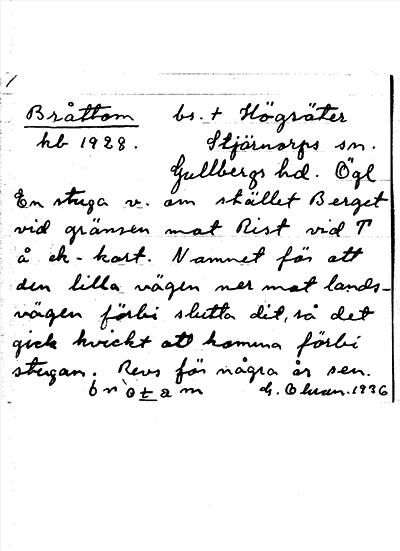 Bråttom bs. t Högsäter
hb 1928. Stjärnorps sn.
Gullbergs hd. Ögl
En stuga v. om stället Berget
vid gränsen mot Rist vid T
å ek-kart. Namnet för att
den lilla vägen ner mot lands-
vägen förbi slutta dit, så det
gick kvickt att komma förbi
stugan. Revs för några år sen.
bròtam G. 1936